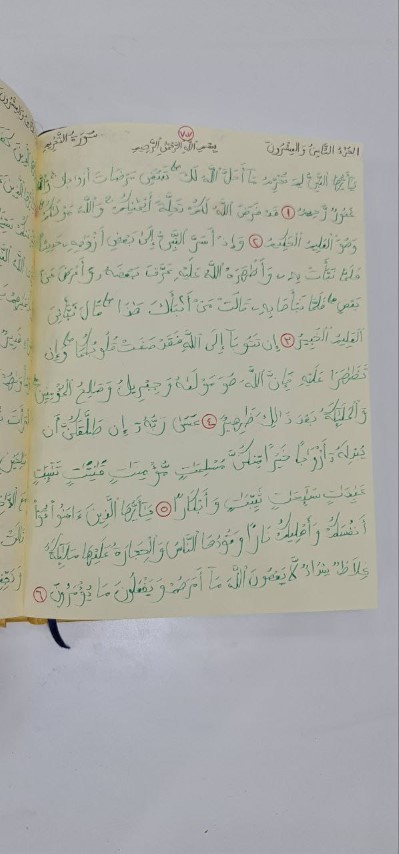 الجزء الثامن والعشرون ٧٧ بسم الله الرحمن الرحيم سورة التحريم
يَٰٓأَيُّهَا ٱلنَّبِيُّ لِمَ تُحَرِّمُ مَآ أَحَلَّ ٱللَّهُ لَكَ تَبْتَغِي مَرْضَاتَ أَزْوَٰجِكَ وَٱللَّهُ
غَفُورٌ رَّحِيمٌ ١ قَدْ فَرَضَ ٱللَّهُ لَكُمْ تَحِلَّةَ أَيْمَٰنِكُمْ وَٱللَّهُ مَوْلَىٰكُمْ
وَهُوَ ٱلْعَلِيمُ ٱلْحَكِيمُ ٢ وَإِذْ أَسَرَّ ٱلنَّبِيُّ إِلَىٰ بَعْضِ أَزْوَٰجِهِۦ حَدِيثًا
فَلَمَّا نَبَّأَتْ بِهِۦ وَأَظْهَرَهُ ٱللَّهُ عَلَيْهِ عَرَّفَ بَعْضَهُۥ وَأَعْرَضَ عَنۢ
بَعْضٍ فَلَمَّا نَبَّأَهَا بِهِۦ قَالَتْ مَنْ أَنۢبَأَكَ هَٰذَا قَالَ نَبَّأَنِيَ
ٱلْعَلِيمُ ٱلْخَبِيرُ ٣ إِن تَتُوبَآ إِلَى ٱللَّهِ فَقَدْ صَغَتْ قُلُوبُكُمَا وَإِن
تَظَٰهَرَا عَلَيْهِ فَإِنَّ ٱللَّهَ هُوَ مَوْلَىٰهُ وَجِبْرِيلُ وَصَٰلِحُ ٱلْمُؤْمِنِينَ
وَٱلْمَلَٰٓئِكَةُ بَعْدَ ذَٰلِكَ ظَهِيرٌ ٤ عَسَىٰ رَبُّهُۥٓ إِن طَلَّقَكُنَّ أَن
يُبْدِلَهُۥٓ أَزْوَٰجًا خَيْرًا مِّنكُنَّ مُسْلِمَٰتٍ مُّؤْمِنَٰتٍ قَٰنِتَٰتٍ تَٰٓئِبَٰتٍ
عَٰبِدَٰتٍ سَٰٓئِحَٰتٍ ثَيِّبَٰتٍ وَأَبْكَارًا ٥ يَٰٓأَيُّهَا ٱلَّذِينَ ءَامَنُوا۟ قُوٓا۟
أَنفُسَكُمْ وَأَهْلِيكُمْ نَارًا وَقُودُهَا ٱلنَّاسُ وَٱلْحِجَارَةُ عَلَيْهَا مَلَٰٓئِكَةٌ
غِلَاظٌ شِدَادٌ لَّا يَعْصُونَ ٱللَّهَ مَآ أَمَرَهُمْ وَيَفْعَلُونَ مَا يُؤْمَرُونَ ٦